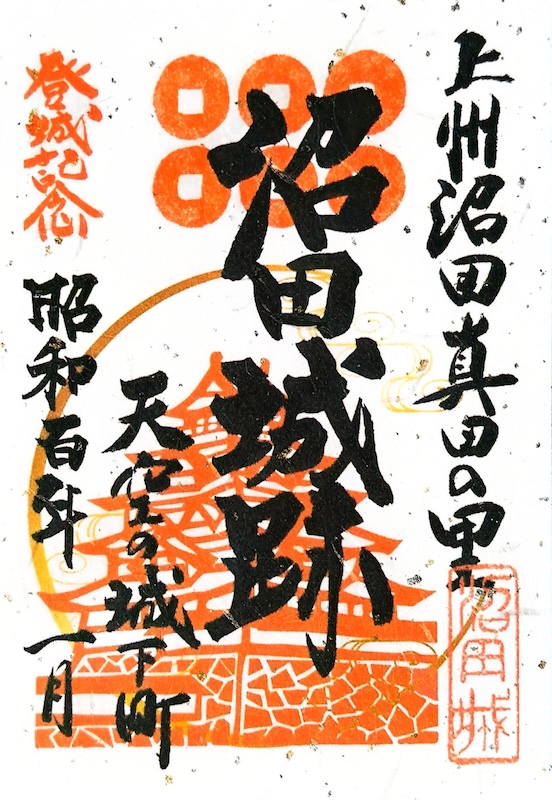 上州沼田真田の里
沼田城跡
天空の城下町
登城記念
昭和百年 一月
沼田城